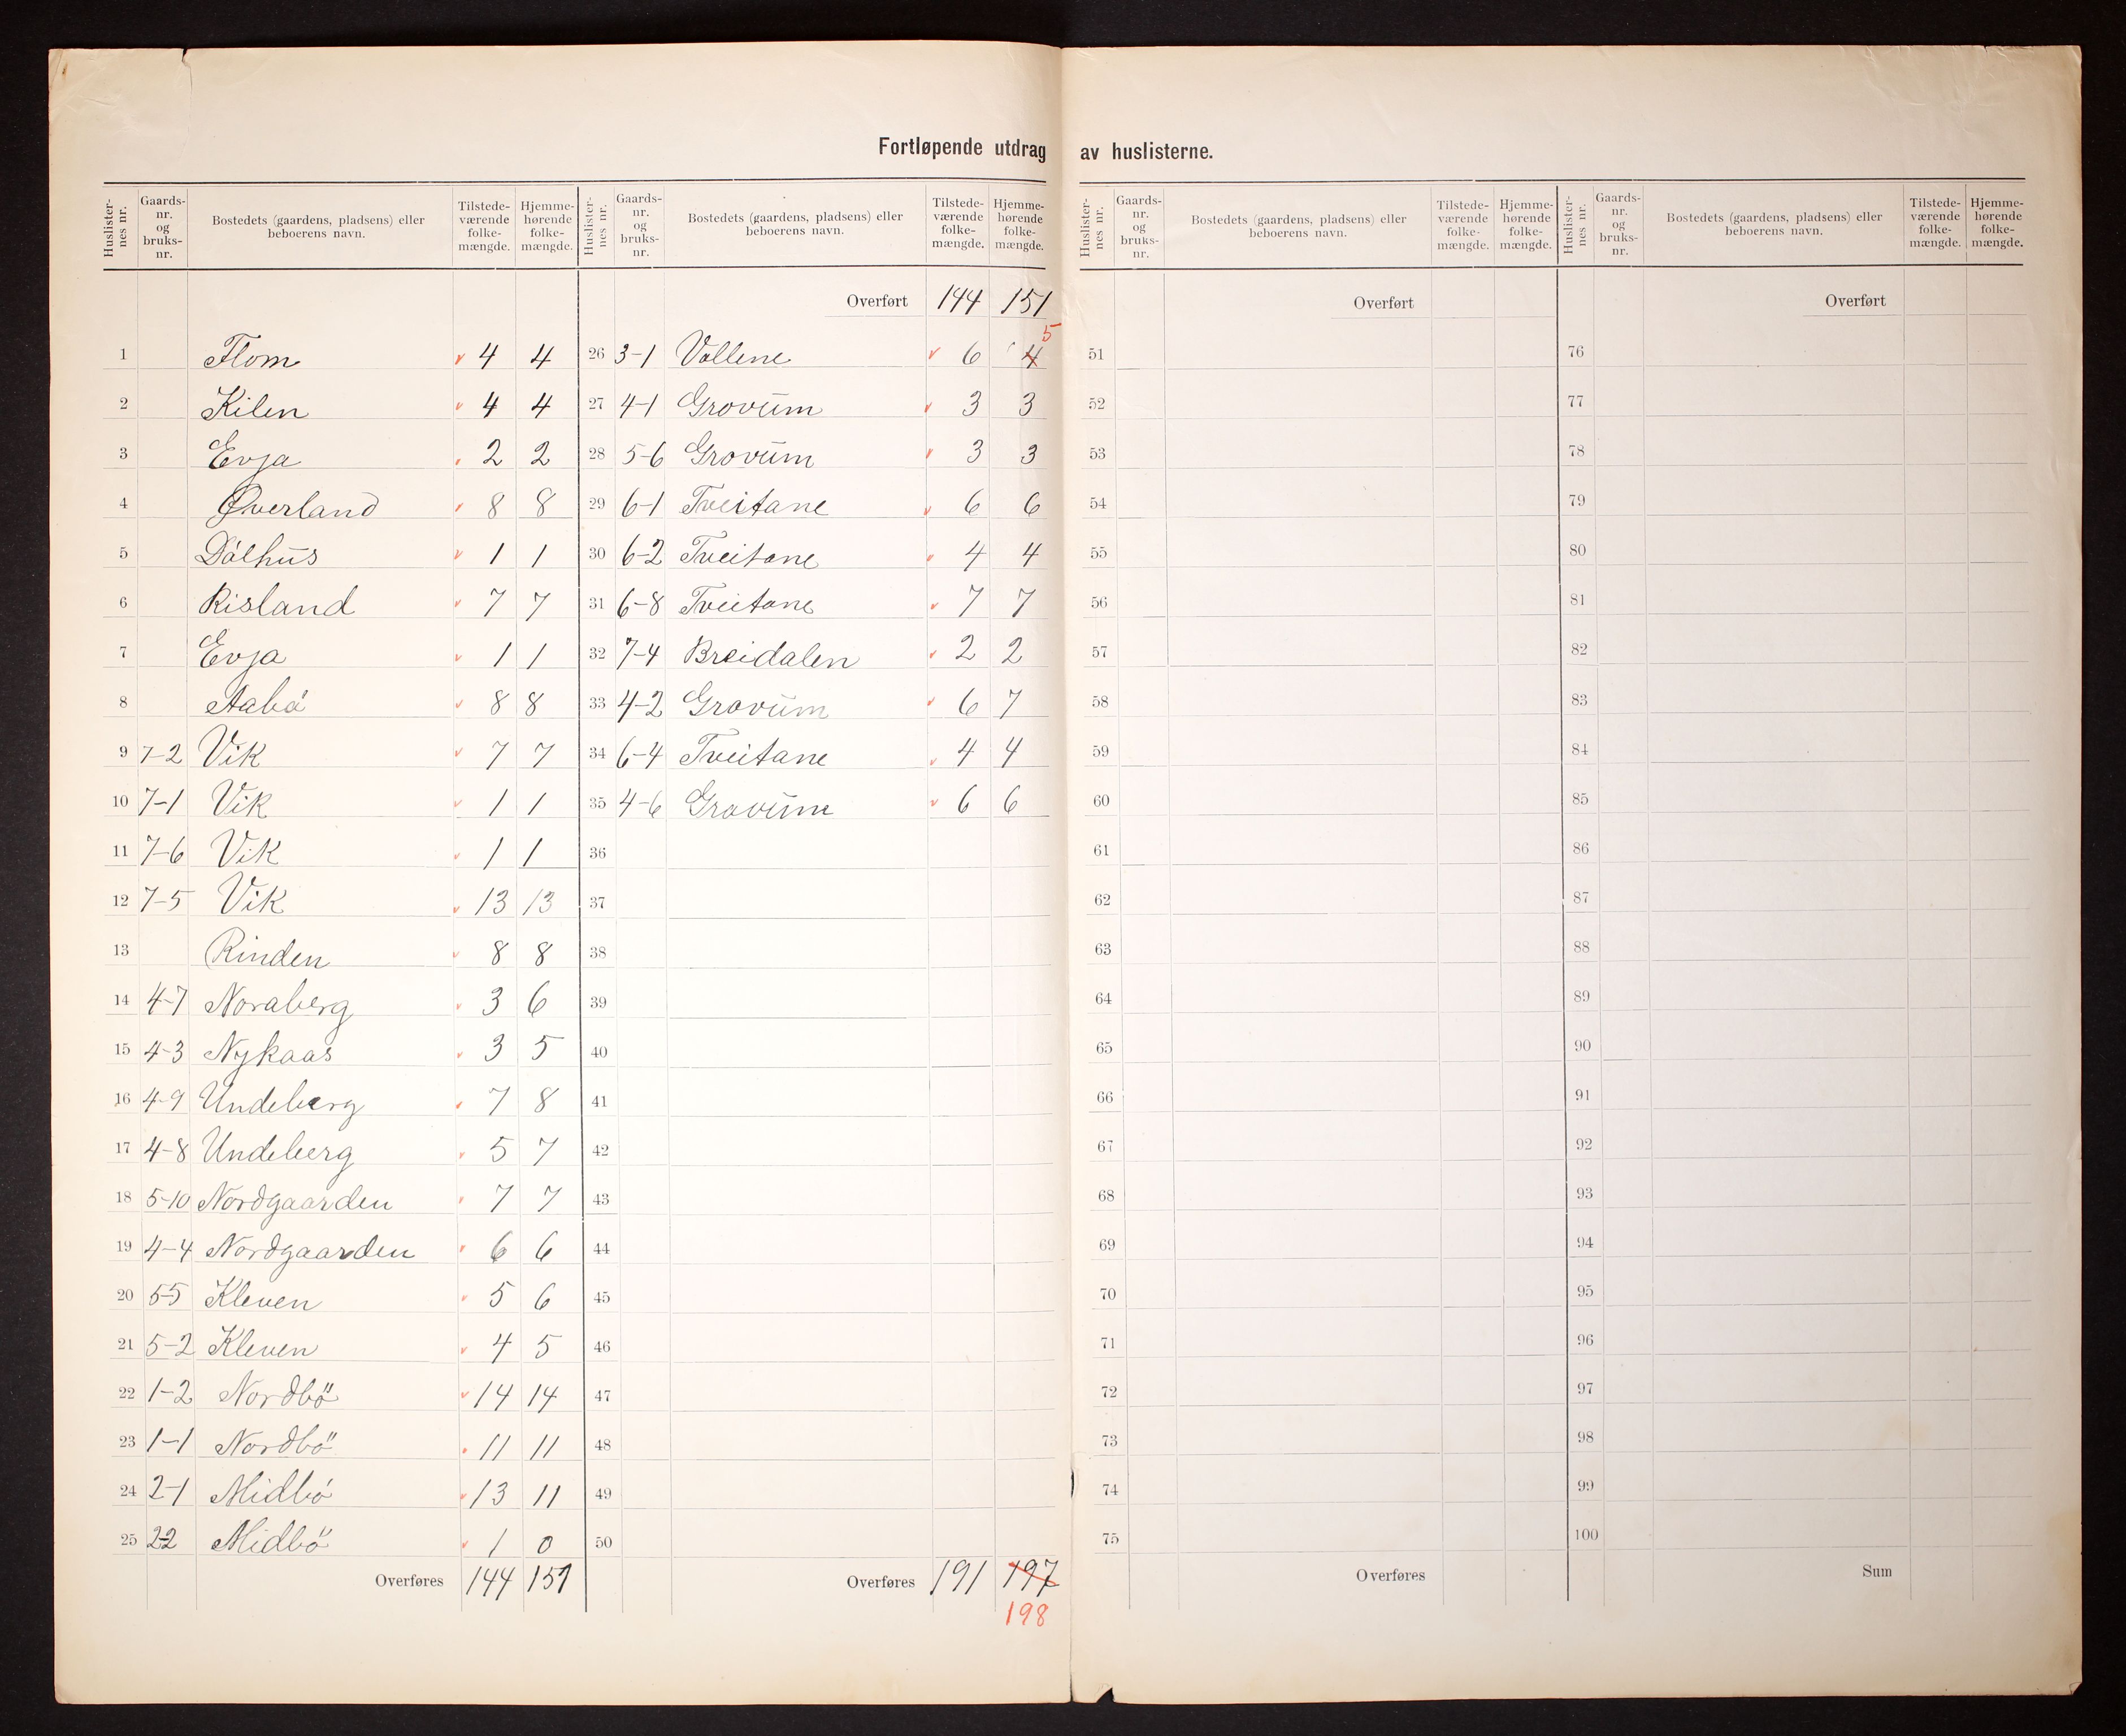 Fortløpende utdrag av huslisterne.
Huslisternes nr. Gaards-nr. og bruks-nr. Bostedets (gaardens, pladsens) eller beboerens navn. Tilstede-værende folke-mængde. Hjemme-hørende folke-mængde.
1 Flom 4 4
2 Kilen 4 4
3 Evja 2 2
4 Øverland 8 8
5 Dålhus 1 1
6 Risland 7 7
7 Evja 1 1
8 Aabø 8 8
9 7-2 Vik 7 7
10 7-1 Vik 1 1
11 7-6 Vik 1 1
12 7-5 Vik 13 13
13 Rinden 8 8
14 4-7 Noraberg 3 6
15 4-3 Nykaas 3 5
16 4-9 Undeberg 7 8
17 4-8 Undeberg 5 7
18 5-10 Nordgaarden 7 7
19 4-4 Nordgaarden 6 6
20 5-5 Kleven 5 6
21 5-2 Kleven 4 5
22 1-2 Nordbö 14 14
23 1-1 Nordbö 11 11
24 2-1 Midbö 13 11
25 2-2 Midbö 1 0
Overføres 144 151
Huslisternes nr. Gaards-nr. og bruks-nr. Bostedets (gaardens, pladsens) eller beboerens navn. Tilstede-værende folke-mængde. Hjemme-hørende folke-mængde.
Overført 144 151
26 3-1 Vollene 6 4 5
27 4-1 Grovum 3 3
28 5-6 Grovum 3 3
29 6-1 Tveitane 6 6
30 6-2 Tveitane 4 4
31 6-8 Tveitane 7 7
32 7-4 Breidalen 2 2
33 4-2 Grovum 6 7
34 6-4 Tveitane 4 4
35 4-6 Grovum 6 6
36
37
38
39
40
41
42
43
44
45
46
47
48
49
50
Overføres 191 197
198
Huslisternes nr. Gaards-nr. og bruks-nr. Bostedets (gaardens, pladsens) eller beboerens navn. Tilstede-værende folke-mængde. Hjemme-hørende folke-mængde.
Overført
51
52
53
54
55
56
57
58
59
60
61
62
63
64
65
66
67
68
69
70
71
72
73
74
75
Overføres
Huslisternes nr. Gaards-nr. og bruks-nr. Bostedets (gaardens, pladsens) eller beboerens navn. Tilstede-værende folke-mængde. Hjemme-hørende folke-mængde.
Overført
76
77
78
79
80
81
82
83
84
85
86
87
88
89
90
91
92
93
94
95
96
97
98
99
100
Sum